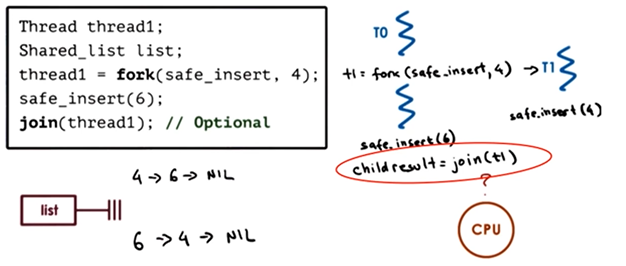 Thread thread1;
Shared_list list;
thread1 = fork(safe_insert, 4);
safe_insert(6);
join(thread1); // Optional
T0
t1 = fork(safe_insert,4) → T1
safe.insert(4)
safe.insert(6)
child result = join(t1)
?
CPU
4 → 6 → NIL
list
6 → 4 → NIL